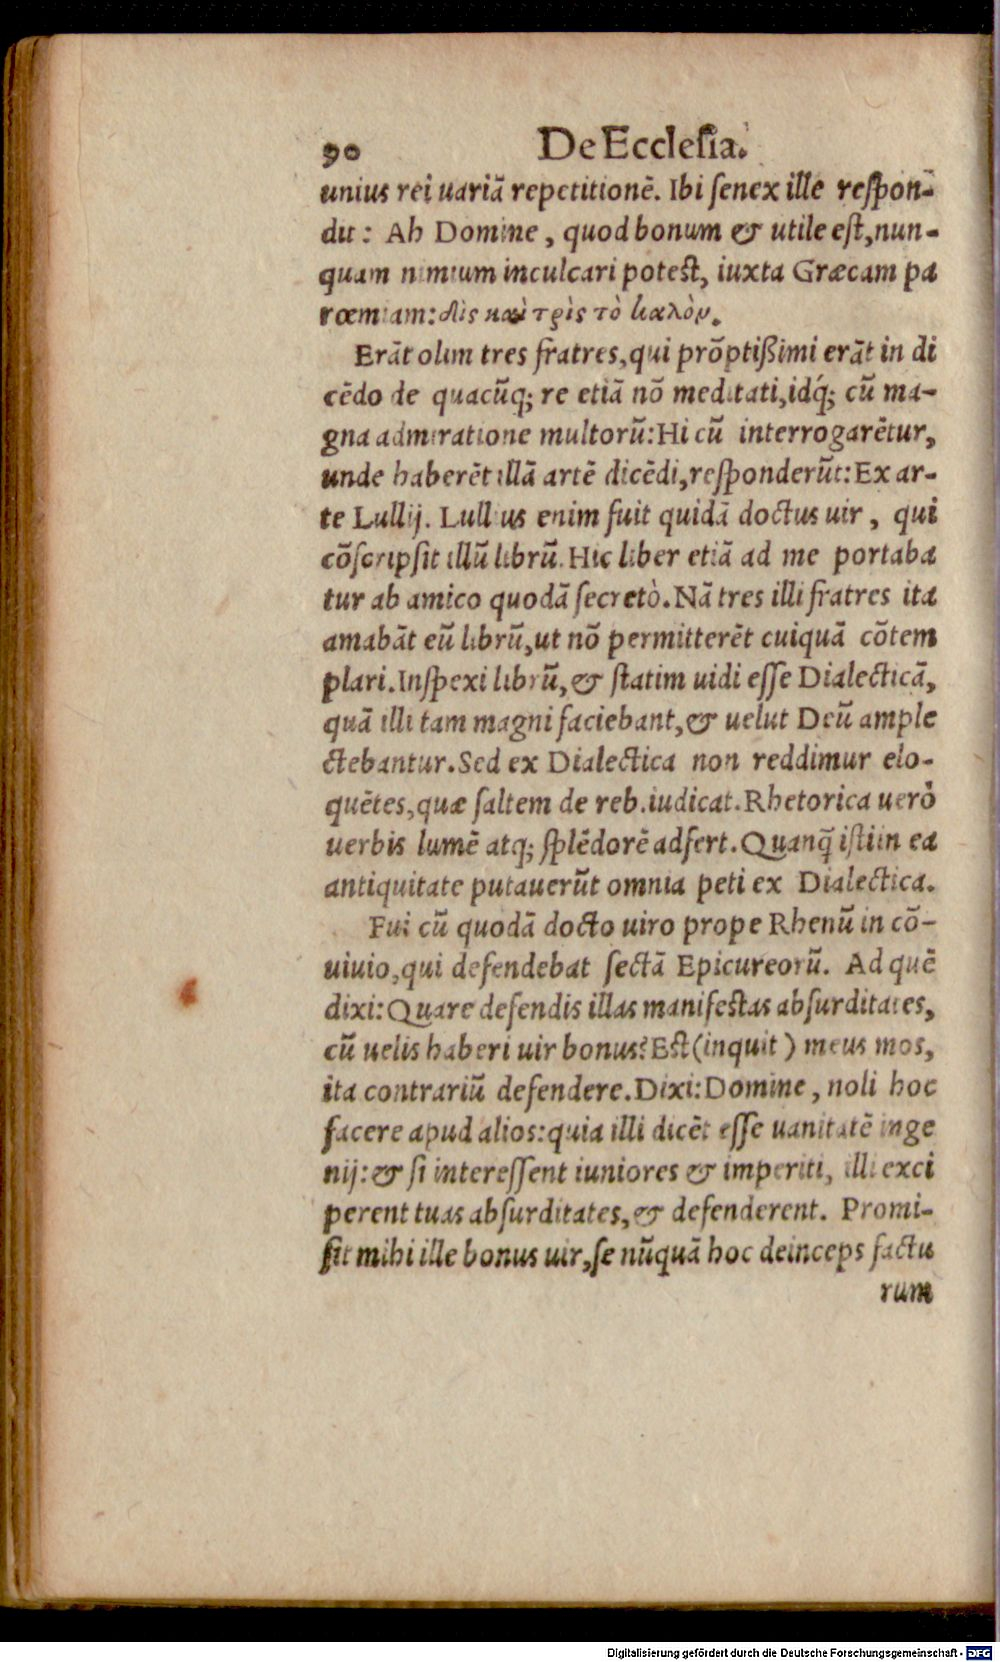 90 De Ecclesia.
unius rei uariā repetitionē. Ibi ſenex ille reſpon-
dit: Ah Domine, quod bonum & utile eſt, nun-
quam nimium inculcari poteſt, iuxta Græcam pa
rœmiam: δὶς καὶ τρὶς τὸ καλὸν.
Erāt olim tres fratres, qui prōptißimi erāt in di
cēdo de quacūq; re etiā nō meditati, idq́; cū ma-
gna admiratione multorū: Hi cū interrogarētur,
unde haberēt illā artē dicēdi, reſponderūt: Ex ar-
te Lullij. Lullius enim fuit quidā doctus uir, qui
cōſcripſit illū librū. Hic liber etiā ad me portaba
tur ab amico quodā ſecretò. Nā tres illi fratres ita
amabāt eū librū, ut nō permitterēt cuiquā cōtem
plari. Inſpexi librū, & ſtatim uidi eſſe Dialecticā,
quā illi tam magni faciebant, & uelut Deū ample
ctebantur. Sed ex Dialectica non reddimur elo-
quētes, quæ ſaltem de reb. iudicat. Rhetorica uerò
uerbis lumē atq; ſplēdorē adfert. Quanq̄ iſti in ea
antiquitate putauerūt omnia peti ex Dialectica.
Fui cū quodā docto uiro prope Rhenū in cō-
uiuio, qui defendebat ſectā Epicureorū. Ad quē
dixi: Quare defendis illas manifeſtas abſurditates,
cū uelis haberi uir bonus? Eſt (inquit) meus mos,
ita contrariū defendere. Dixi: Domine, noli hoc
facere apud alios: quia illi dicēt eſſe uanitatē inge
nij: & ſi intereſſent iuniores & imperiti, illi exci
perent tuas abſurditates, & defenderent. Promi-
ſit mihi ille bonus uir, ſe nūquā hoc deinceps factu
rum
Digitalisierung gefördert durch die Deutsche Forschungsgemeinschaft - DFG